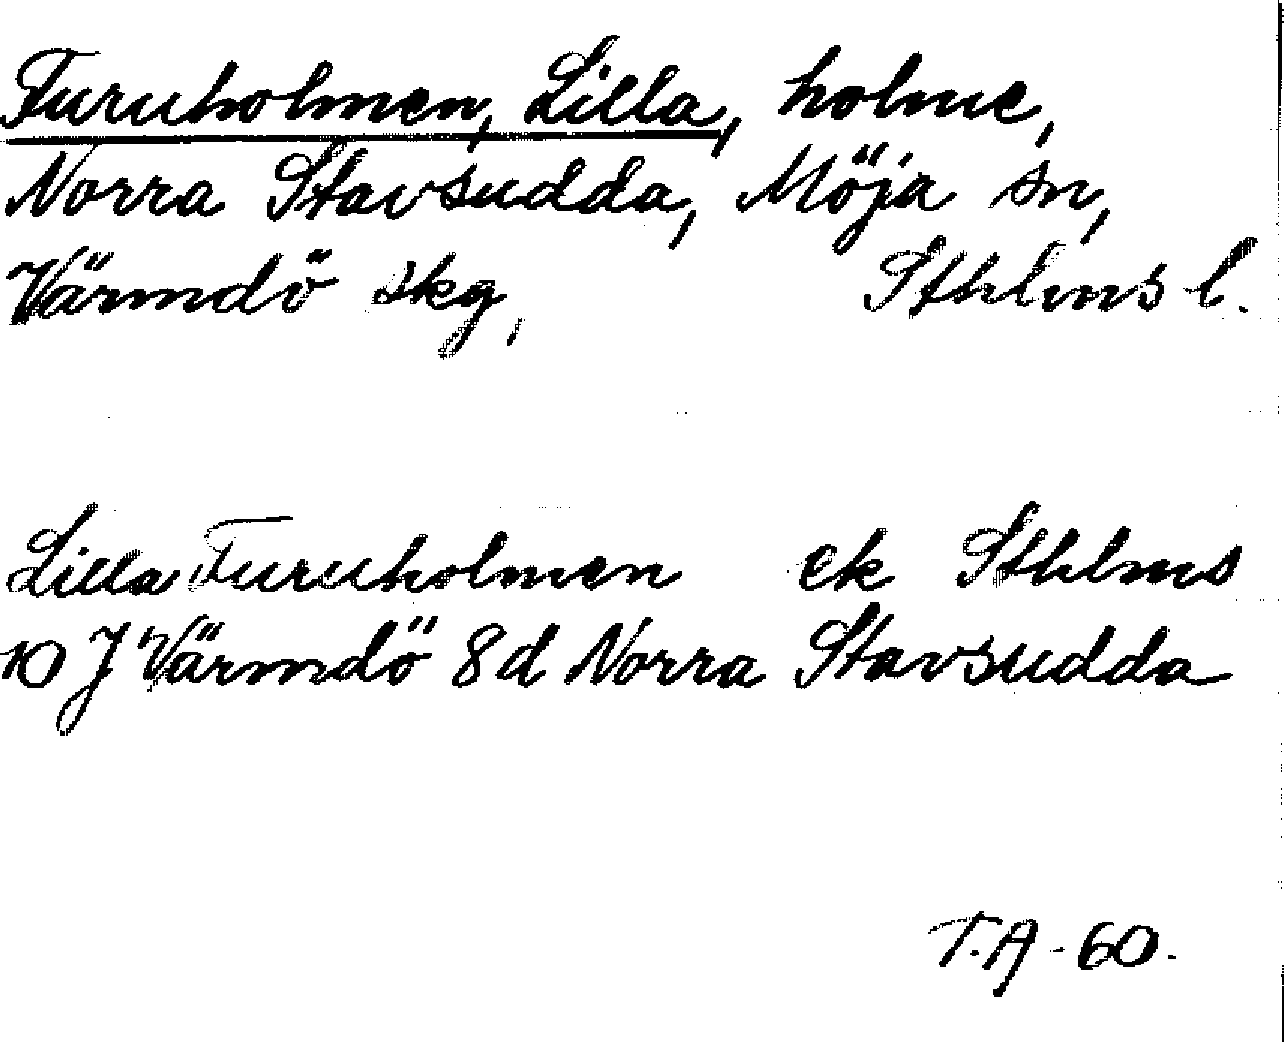 Furuholmen, Lilla, holme,
Norra Stavsudda, Möja sn,
Värmdö skg, Sthlms l.
Lilla Furuholmen ek Sthlms
10 J Värmdö 8d Norra Stavsudda
T.A-60.